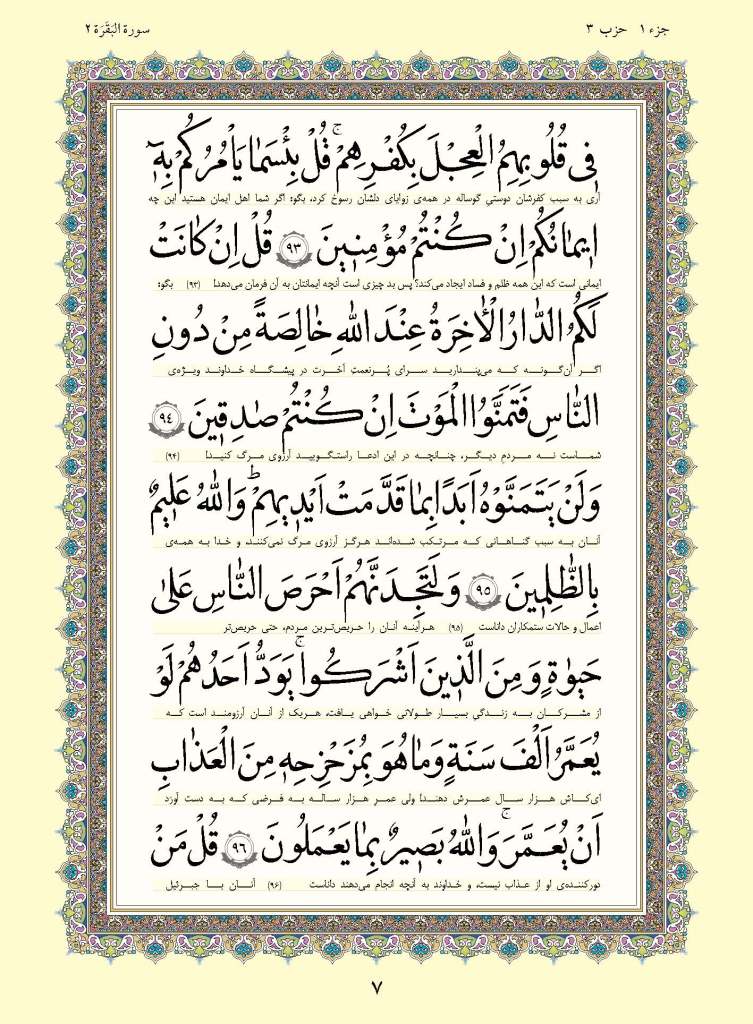 جزء ۱ حزب ۳
سورة البَقَرَة ۲
فِى قُلُوبِهِمُ الْعِجْلَ بِكُفْرِهِمْ ۚ قُلْ بِئْسَمَا يَأْمُرُكُمْ بِهِۤ
آری به سبب کفرشان دوستیِ گوساله در همه‌ی زوایای دلشان رسوخ کرد، بگو: اگر شما اهل ایمان هستید این چه
ايمَانُكُمْ اِنْ كُنْتُمْ مُؤْمِنينَ ﴿۹۳﴾ قُلْ اِنْ كَانَتْ
ایمانی است که این همه ظلم و فساد ایجاد می‌کند؟ پس بد چیزی است آنچه ایمانتان به آن فرمان می‌دهد! (۹۳) بگو:
لَكُمُ الدَّارُ الْاٰخِرَةُ عِنْدَ اللّٰهِ خَالِصَةً مِنْ دُونِ
اگر آن‌گونه که می‌پندارید سرای پُرنعمتِ آخرت در پیشگاه خداوند ویژه‌ی
النَّاسِ فَتَمَنَّوُا الْمَوْتَ اِنْ كُنْتُمْ صَادِقينَ ﴿۹۴﴾
شماست نه مردم دیگر، چنانچه در این ادعا راستگویید آرزوی مرگ کنید! (۹۴)
وَلَنْ يَتَمَنَّوْهُ اَبَدًا بِمَا قَدَّمَتْ اَيْديهِمْ ؕ وَاللّٰهُ عَليمٌ
آنان به سبب گناهانی که مرتکب شده‌اند هرگز آرزوی مرگ نمی‌کنند، و خدا به همه‌ی
بِالظَّالِمينَ ﴿۹۵﴾ وَلَتَجِدَنَّهُمْ اَحْرَصَ النَّاسِ عَلىٰ
اعمال و حالات ستمکاران داناست (۹۵) هرآینه آنان را حریص‌ترین مردم، حتی حریص‌تر
حَيٰوةٍ وَمِنَ الَّذينَ اَشْرَكُوا ۚ يَوَدُّ اَحَدُهُمْ لَوْ
از مشرکان به زندگیِ بسیار طولانی خواهی یافت، هریک از آنان آرزومند است که
يُعَمَّرُ اَلْفَ سَنَةٍ وَمَا هُوَ بِمُزَحْزِحِهٖ مِنَ الْعَذَابِ
ای‌کاش هزار سال عمرش دهند! ولی عمر هزار ساله به فرضی که به دست آوَرَد
اَنْ يُعَمَّرَ ۚ وَاللّٰهُ بَصيرٌ بِمَا يَعْمَلُونَ ﴿۹۶﴾ قُلْ مَنْ
دورکننده‌ی او از عذاب نیست، و خداوند به آنچه انجام می‌دهند داناست (۹۶) آنان با جبرئیل
۷